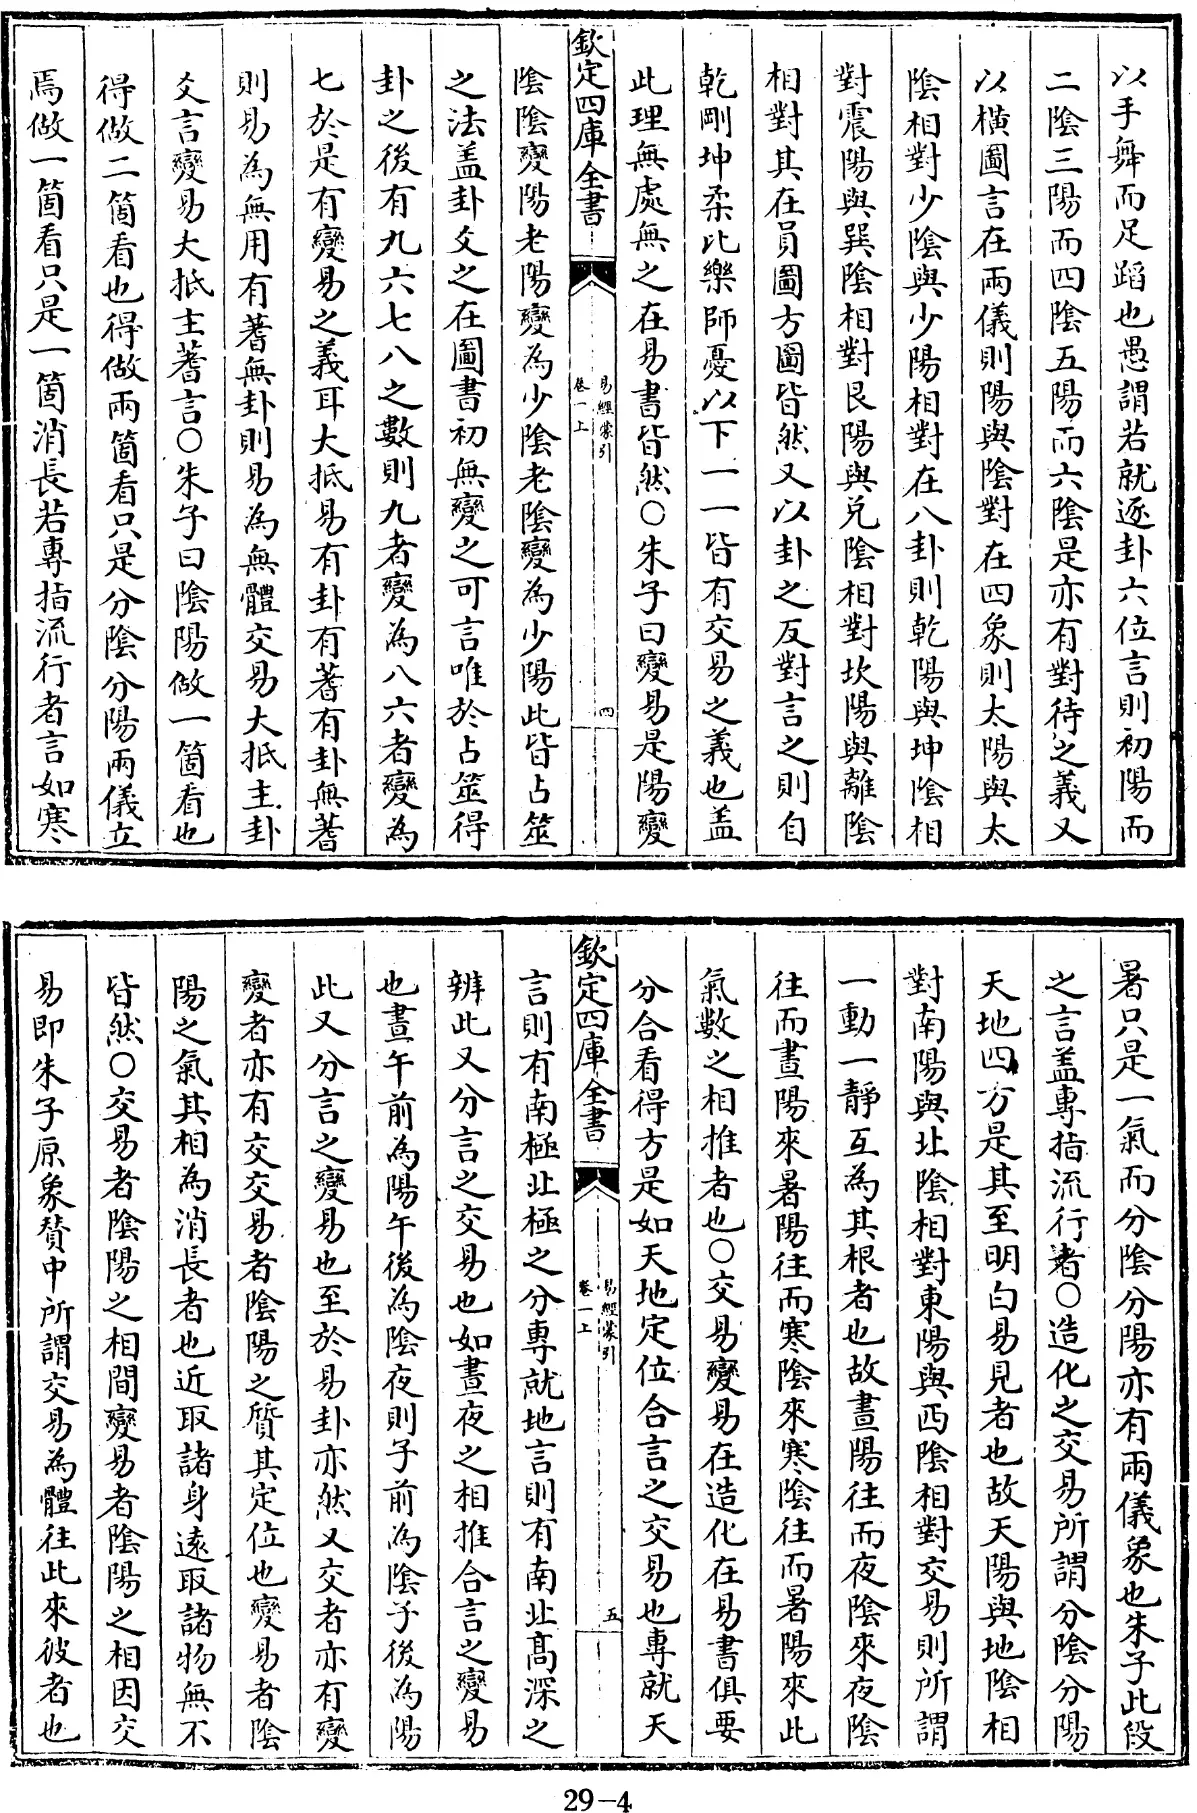 以手舞而足蹈也愚謂若就逐卦六位言則初陽而
二陰三陽而四陰五陽而六陰是亦有對待之義又
以橫圖言在兩儀則陽與陰對在四象則太陽與太
陰相對少陰與少陽相對在八卦則乾陽與坤陰相
對震陽與巽陰相對艮陽與兌陰相對坎陽與離陰
相對其在員圖方圖皆然又以卦之反對言之則自
乾剛坤柔比樂師憂以下一一皆有交易之義也盖
此理無處無之在易書皆然○朱子曰變易是陽變
欽定四庫全書
易經蒙引
卷一上
四
陰陰變陽老陽變為少陰老陰變為少陽此皆占筮
之法盖卦爻之在圖書初無變之可言唯於占筮得
卦之後有九六七八之數則九者變為八六者變為
七於是有變易之義耳大抵易有卦有蓍有卦無蓍
則易為無用有蓍無卦則易為無體交易大抵主卦
爻言變易大抵主蓍言○朱子曰陰陽做一箇看也
得做二箇看也得做兩箇看只是分陰分陽兩儀立
焉做一箇看只是一箇消長若專指流行者言如寒
暑只是一氣而分陰分陽亦有兩儀象也朱子此段
之言盖專指流行者○造化之交易所謂分陰分陽
天地四方是其至明白易見者也故天陽與地陰相
對南陽與北陰相對東陽與西陰相對交易則所謂
一動一靜互為其根者也故晝陽往而夜陰來夜陰
往而晝陽來暑陽往而寒陰來寒陰往而暑陽來此
氣數之相推者也○交易變易在造化在易書俱要
分合看得方是如天地定位合言之交易也專就天
欽定四庫全書
易經蒙引
卷一上
五
言則有南極北極之分專就地言則有南北高深之
辨此又分言之交易也如晝夜之相推合言之變易
也晝午前為陽午後為陰夜則子前為陰子後為陽
此又分言之變易也至於易卦亦然又交者亦有變
變者亦有交交易者陰陽之質其定位也變易者陰
陽之氣其相為消長者也近取諸身遠取諸物無不
皆然○交易者陰陽之相間變易者陰陽之相因交
易即朱子原象贊中所謂交易為體往此來彼者也
29-4